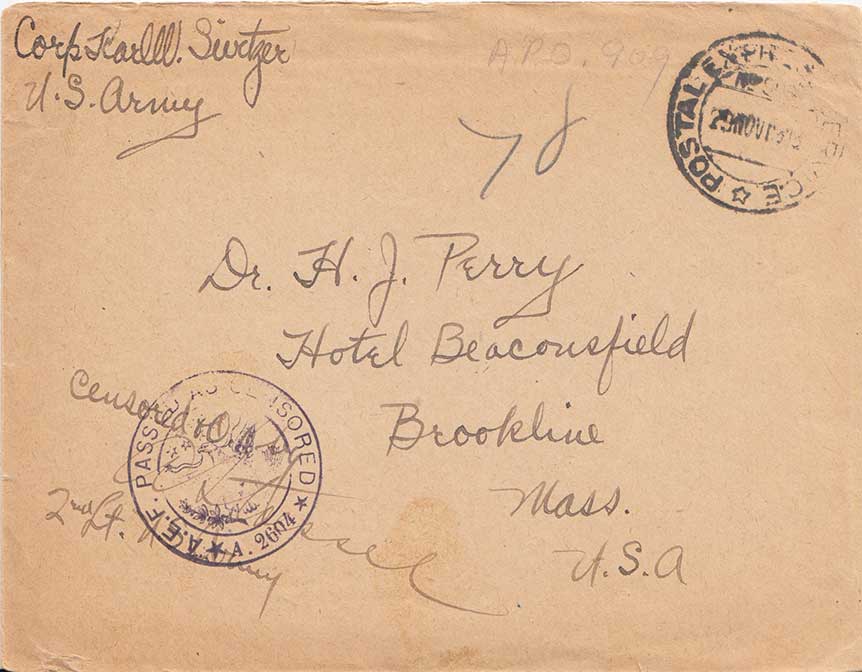 Corp Karl W. Switzer
U.S. Army
A.P.O. 909
POSTAL EXPRESS SERVICE
29 NOV
Dr. H. J. Perry
Hotel Beaconsfield
Brookline
Mass.
U.S.A
Censored
A.E.F. PASSED AS CENSORED A. 2604
2nd Lt. Army